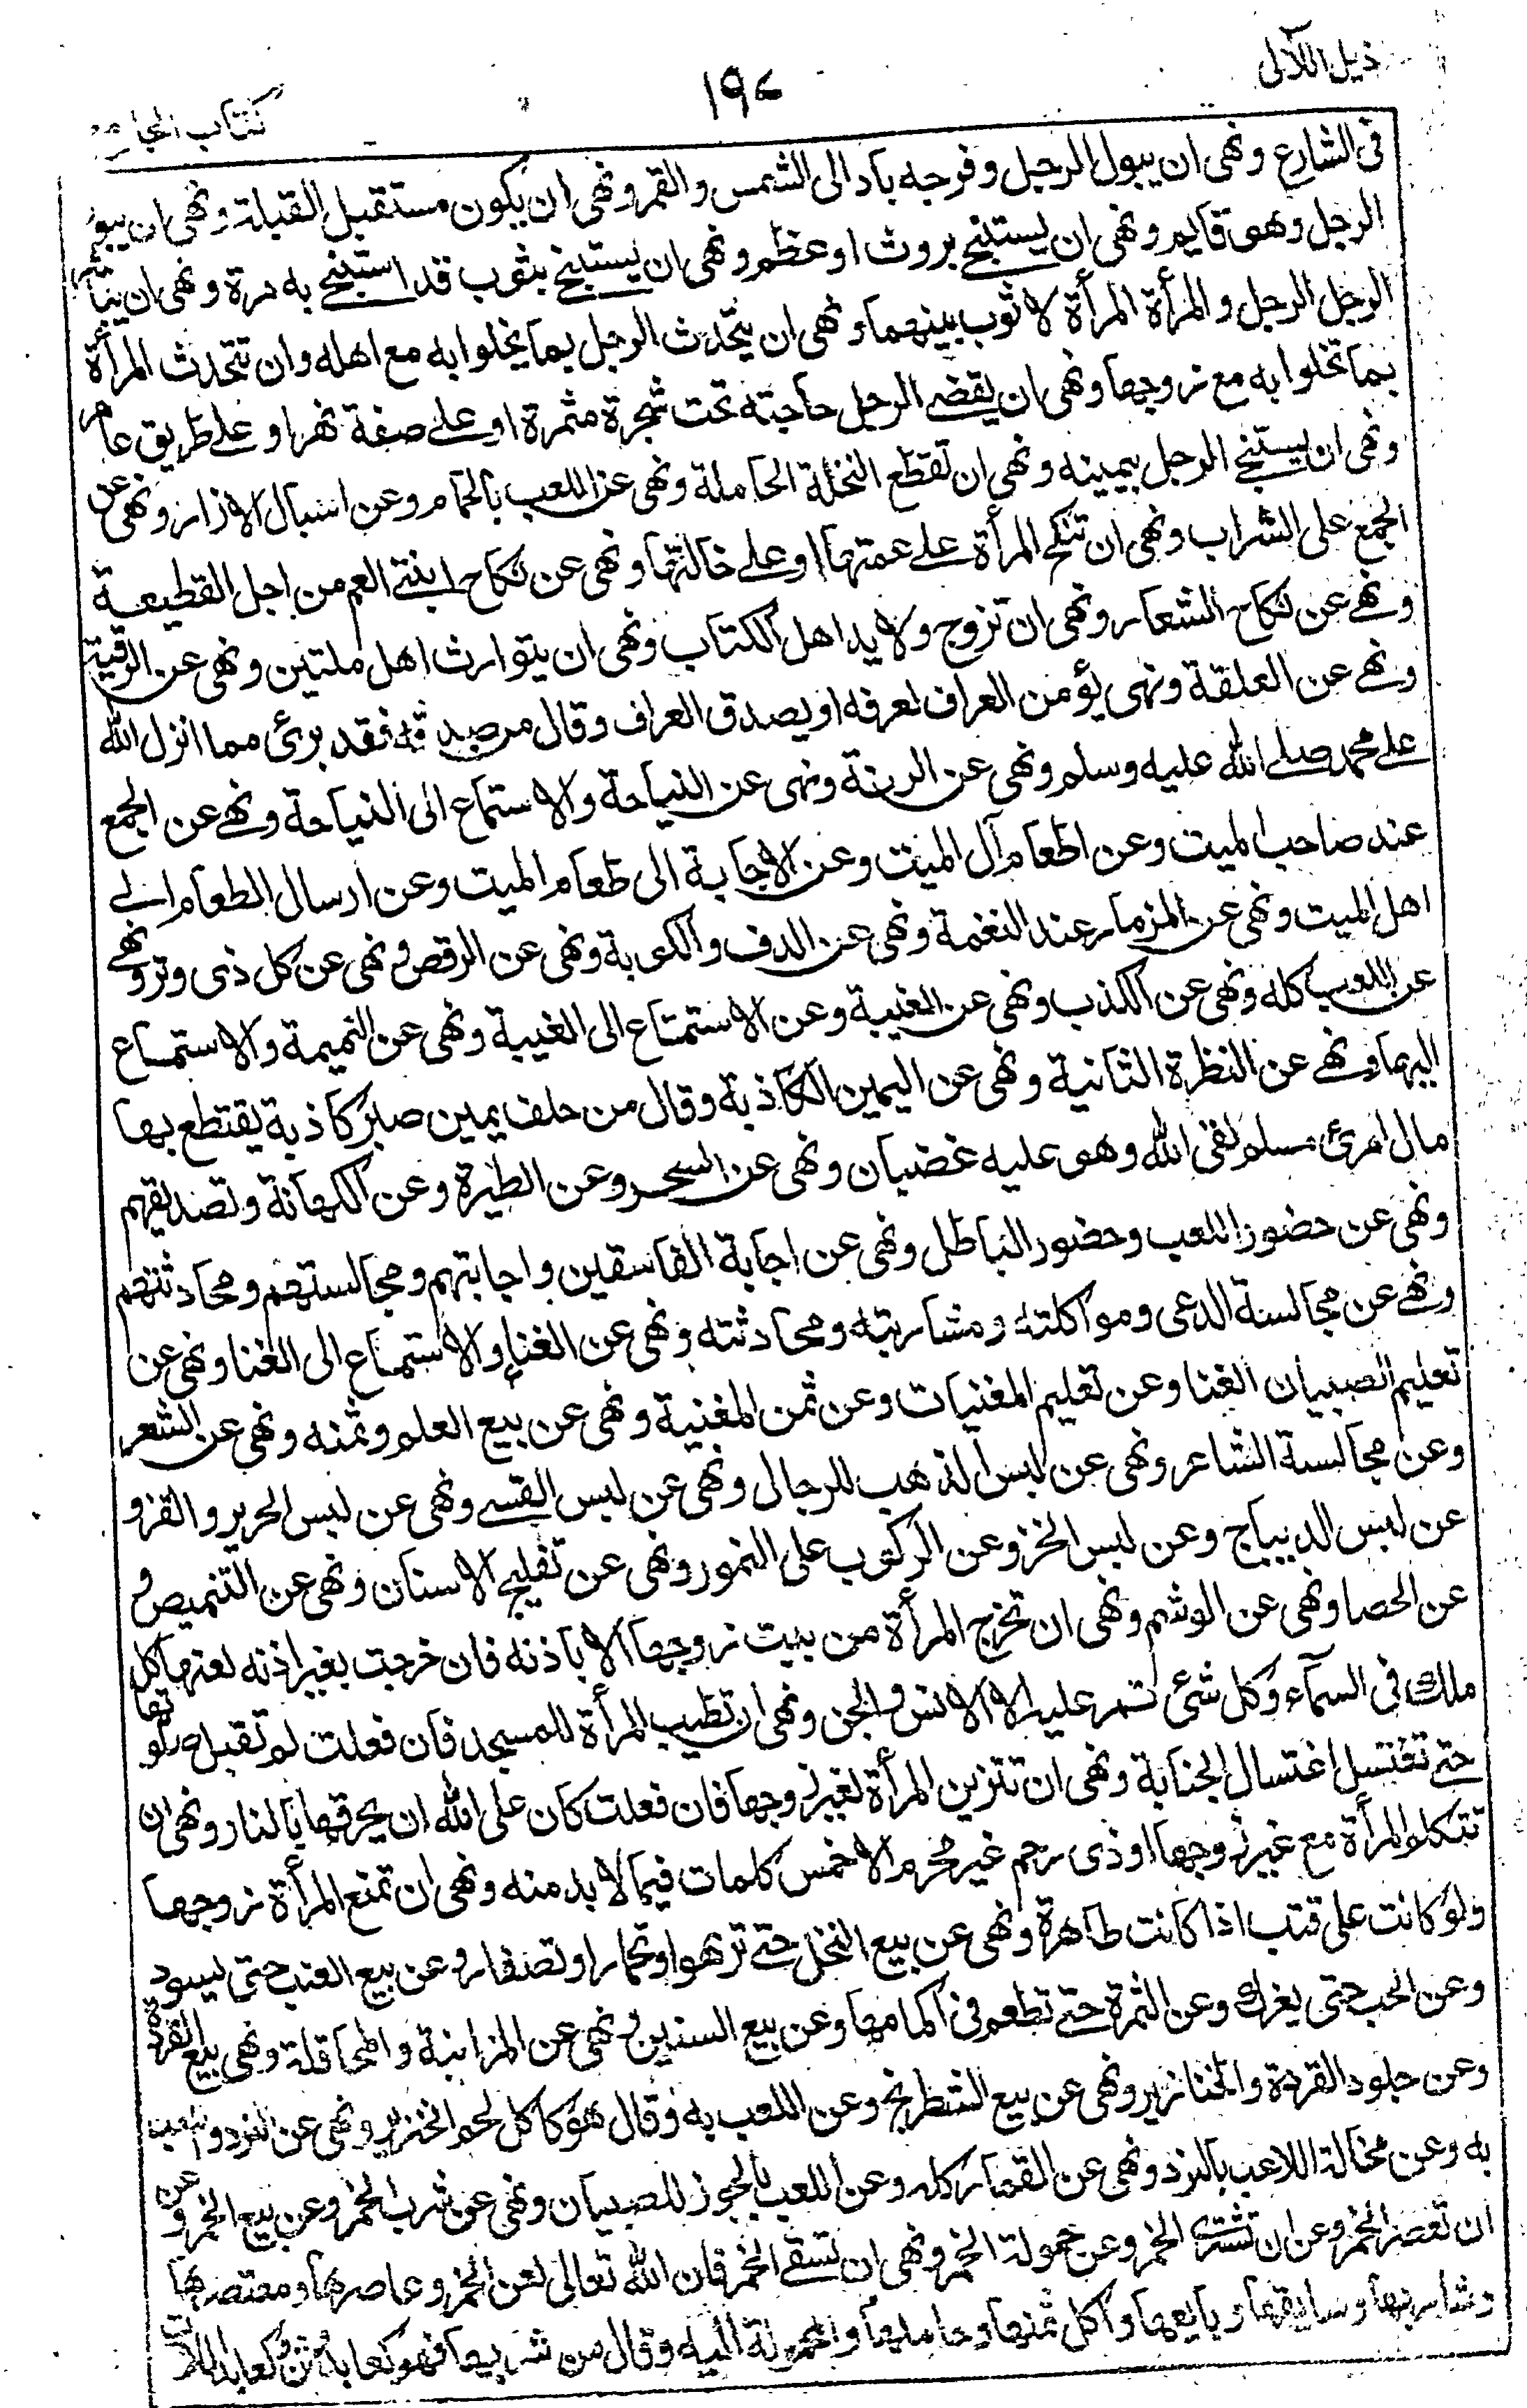 ذيل اللآلى
١٩٤
كتاب الجامع
فى الشارع ونهى ان يبول الرجل وفرجه باد الى الشمس والقمر ونهى ان يكون مستقبل القبلة ونهى ان يبول
الرجل وهو قايم ونهى ان يستنجے بروث او عظم ونهى ان يستنجے بثوب قد استنجے به مرة ونهى ان
الرجل الرجل والمرأة المرأة لا ثوب بينهما ونهى ان يتحدث الرجل بما يخلوا به مع اهله وان تتحدث المرأة
بما تخلوا به مع زوجها ونهى ان يقضے الرجل حاجته تحت شجرة مثمرة او علے ضفة نهر او علے طريق عام
ونهى ان يستنجے الرجل بيمينه ونهى ان تقطع النخلة الحاملة ونهى عن اللعب بالحمام وعن اسبال الازار ونهى عن
الجمع على الشراب ونهى ان تنكح المرأة علے عمتها او علے خالتها ونهى عن نكاح ابنتے العم من اجل القطيعة
ونهے عن نكاح الشعار ونهى ان تزوج ولايد اهل الكتاب ونهى ان يتوارث اهل ملتين ونهى عن الرقية
ونهے عن العلقة ونهى يؤمن العراف لعرفه او يصدق العراف وقال من صدقه فقد برئ مما انزل الله
علے محمد صلے الله عليه وسلم ونهى عن الرنة ونهى عن النياحة والاستماع الى النياحة ونهے عن الجمع
عند صاحب الميت وعن اطعام آل الميت وعن الاجابة الى طعام الميت وعن ارسال الطعام الے
اهل الميت ونهى عن المزمار عند النغمة ونهى عن الدف والكوبة ونهى عن الرقص ونهى عن كل ذى وتر ونهے
عن اللعب كله ونهى عن الكذب ونهى عن الغيبة وعن الاستماع الى الغيبة ونهى عن النميمة والاستماع
اليها ونهے عن النظرة الثانية ونهى عن اليمين الكاذبة وقال من حلف يمين صبر كاذبة يقتطع بها
مال امرئ مسلم لقى الله وهو عليه غضبان ونهى عن السحر وعن الطيرة وعن الكهانة وتصديقهم
ونهى عن حضور اللعب وحضور الباطل ونهى عن اجابة الفاسقين واجابتهم ومجالستهم ومحادثتهم
ونهے عن مجالسة الدعى ومواكلته ومشاربته ومحادثته ونهى عن الغناء والاستماع الى الغنا ونهى عن
تعليم الصبيان الغنا وعن تعليم المغنيات وعن ثمن المغنية ونهى عن بيع العلم وثمنه ونهى عن الشعر
وعن مجالسة الشاعر ونهى عن لبس الذهب للرجال ونهى عن لبس القسے ونهى عن لبس الحرير والقز و
عن لبس الديباج وعن لبس الخز وعن الركوب على النمور ونهى عن تفليج الاسنان ونهى عن التنميص و
عن الحصا ونهى عن الوشم ونهى ان تخرج المرأة من بيت زوجها الا باذنه فان خرجت بغير اذنه لعنها كل
ملك فى السمآء وكل شئ تمر عليه الا الانس والجن ونهى ان تطيب المرأة للمسجد فان فعلت لم تقبل صلوتها
حتے تغتسل اغتسال الجنابة ونهى ان تتزين المرأة لغير زوجها فان فعلت كان على الله ان يحرقها بالنار ونهى ان
تتكلم المرأة مع غير زوجها او ذى رحم غير محرم الا خمس كلمات فيما لا بد منه ونهى ان تمنع المرأة زوجها
ولو كانت على قتب اذا كانت طاهرة ونهى عن بيع النخل حتے تزهوا وتحمارا وتصفار وعن بيع العنب حتى يسود
وعن الحب حتى يفرك وعن الثمرة حتے تطعم فى اكمامها وعن بيع السنين ونهى عن المزابنة والمحاقلة ونهى بيع القردة
وعن جلود القردة والخنازير ونهى عن بيع الشطرنج وعن اللعب به وقال هو كاكل لحم الخنزير ونهى عن النرد واللعب
به وعن مخالة اللاعب بالنرد ونهى عن القمار كله وعن اللعب بالجوز للصبيان ونهى عن شرب الخمر وعن بيع الخمر وعن
ان تعصر الخمر وعن ان تشترى الخمر وعن حمولة الخمر ونهى ان تسقے الخمر فان الله تعالى لعن الخمر وعاصرها ومعتصرها
وشاربها وسايقها وبايعها واكل ثمنها وحاملها والمحمولة اليه وقال من شربها فهو كعابد وثن وكعابد اللات